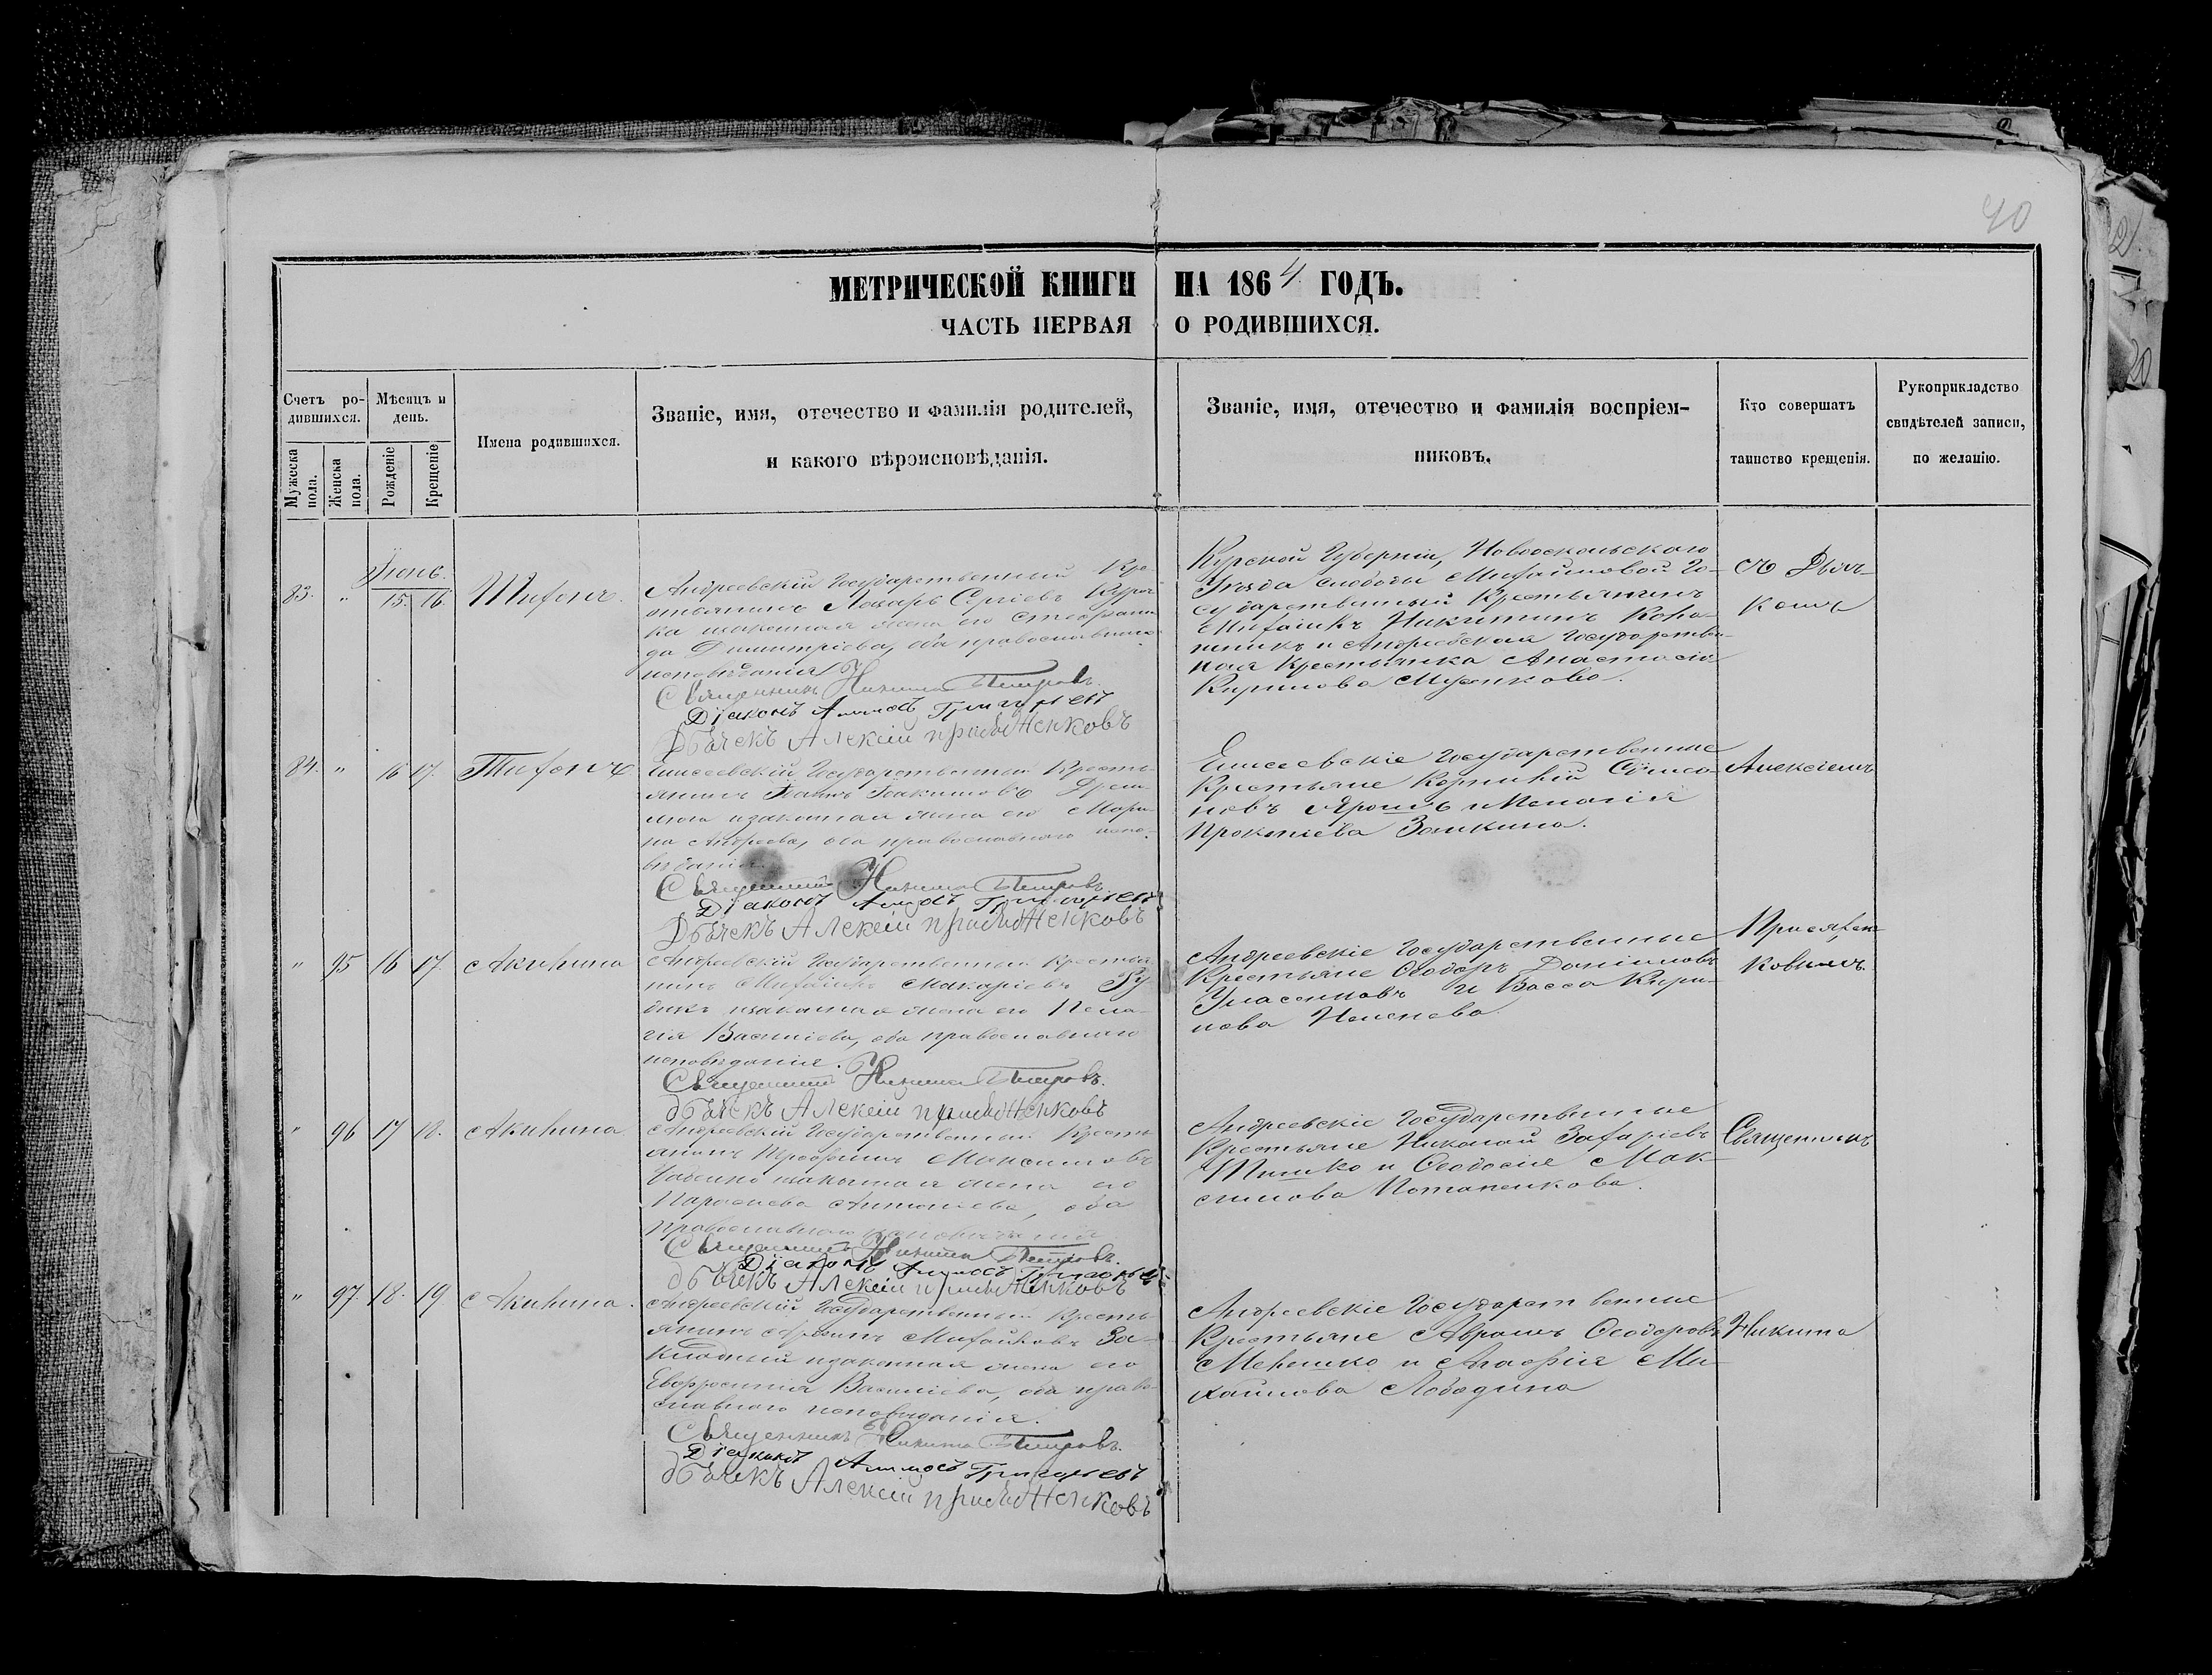 40
МЕТРИЧЕСКОЙ КНИГИ НА 1864 ГОДЪ.
ЧАСТЬ ПЕРВАЯ О РОДИВШИХСЯ.
Счетъ ро-
дившихся.
Мужеска
пола.
Женска
пола.
Мѣсяцъ и
день.
Рожденіе
Крещеніе
Имена родившихся.
Званіе, имя, отечество и фамилія родителей,
и какого вѣроисповѣданія.
Званіе, имя, отечество и фамилія воспріем-
никовъ.
Кто совершатъ
таинство крещенія.
Рукоприкладство
свидѣтелей записи,
по желанію.
Іюнь.
83. " 15. 16. Тихонъ.
Андреевскій Государственный Кре-
стьянинъ Лазарь Сергіевъ
законная жена его Стефани-
да Димитріева, оба православнаго
исповѣданія
Священникъ Никита Петровъ.
Діаконъ Аммосъ Григорьевъ
Дьячекъ Алексій
Курской Губерніи, Новооскольскаго
Уѣзда слободы Михайловой Го-
сударственный Крестьянинъ
Михаилъ Никитинъ
и Андреевская Государствен-
ная Крестьянка Анастасія
Кирилова
съ Дьяч-
комъ
84. " 16 17. Тихонъ
Елисеевскій Государственный Кресть-
янинъ Іоакимовъ
законная жена его Мари-
на Андреева, оба православнаго испо-
вѣданія.
Священникъ Никита Петровъ.
Діаконъ Аммосъ Григорьевъ
Дьячекъ Алексій
Елисеевскіе Государственные
Крестьяне Корнилій Симео-
новъ Ярошъ и Меланія
Прокопіева Заикина.
Алексіемъ
" 95 16 17 Акилина
Андреевскій Государственный Крестья-
нинъ Михаилъ Макаріевъ Ру-
дикъ законная жена его Пела-
гія Василіева, оба православнаго
исповѣданія.
Священникъ Никита Петровъ.
дьячекъ Алексій
Андреевскіе Государственные
Крестьяне Ѳеодоръ Даніиловъ
и Васса Кири-
лова
ковымъ.
" 96 17 18. Акилина
Андреевскій Государственный Кресть-
янинъ Трофимъ Максимовъ
законная жена его
Антоніева, оба
православнаго исповѣданія
Священникъ Никита Петровъ.
Діаконъ Аммосъ Григорьевъ
дьячекъ Алексій
Андреевскіе Государственные
Крестьяне Николай Захаріевъ
Тишко и Ѳеодосія Мак-
симова Потапенкова.
Священникъ
" 97. 18. 19 Акилина.
Андреевскій Государственный Кресть-
янинъ Михайловъ За-
законная жена его
Евфросинія Василіева, оба право-
славнаго исповѣданія.
Священникъ Никита Петровъ.
Діаконъ Аммосъ Григорьевъ
дьячекъ Алексій
Андреевскіе Государственные
Крестьяне Аврамъ Ѳеодоровъ
и Агафія Ми-
хайлова Лободина
Никита